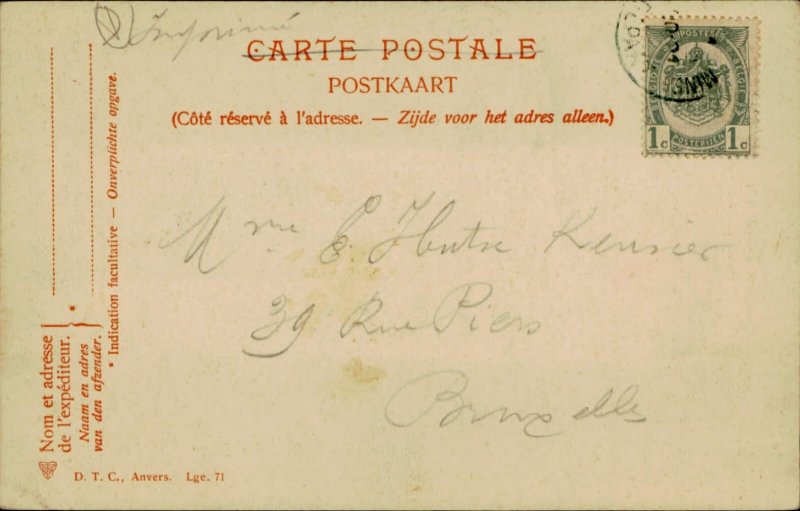 Imprimé
CARTE POSTALE
POSTKAART
(Côté réservé à l'adresse. — Zijde voor het adres alleen.)
POSTES
1c 1c
POSTERIJEN
Mme E.
39 Rue Piers
Bruxelles
Nom et adresse
de l'expéditeur.
Naam en adres
van den afzender.
*
* Indication facultative — Onverplichte opgave.
D. T. C., Anvers. Lge. 71